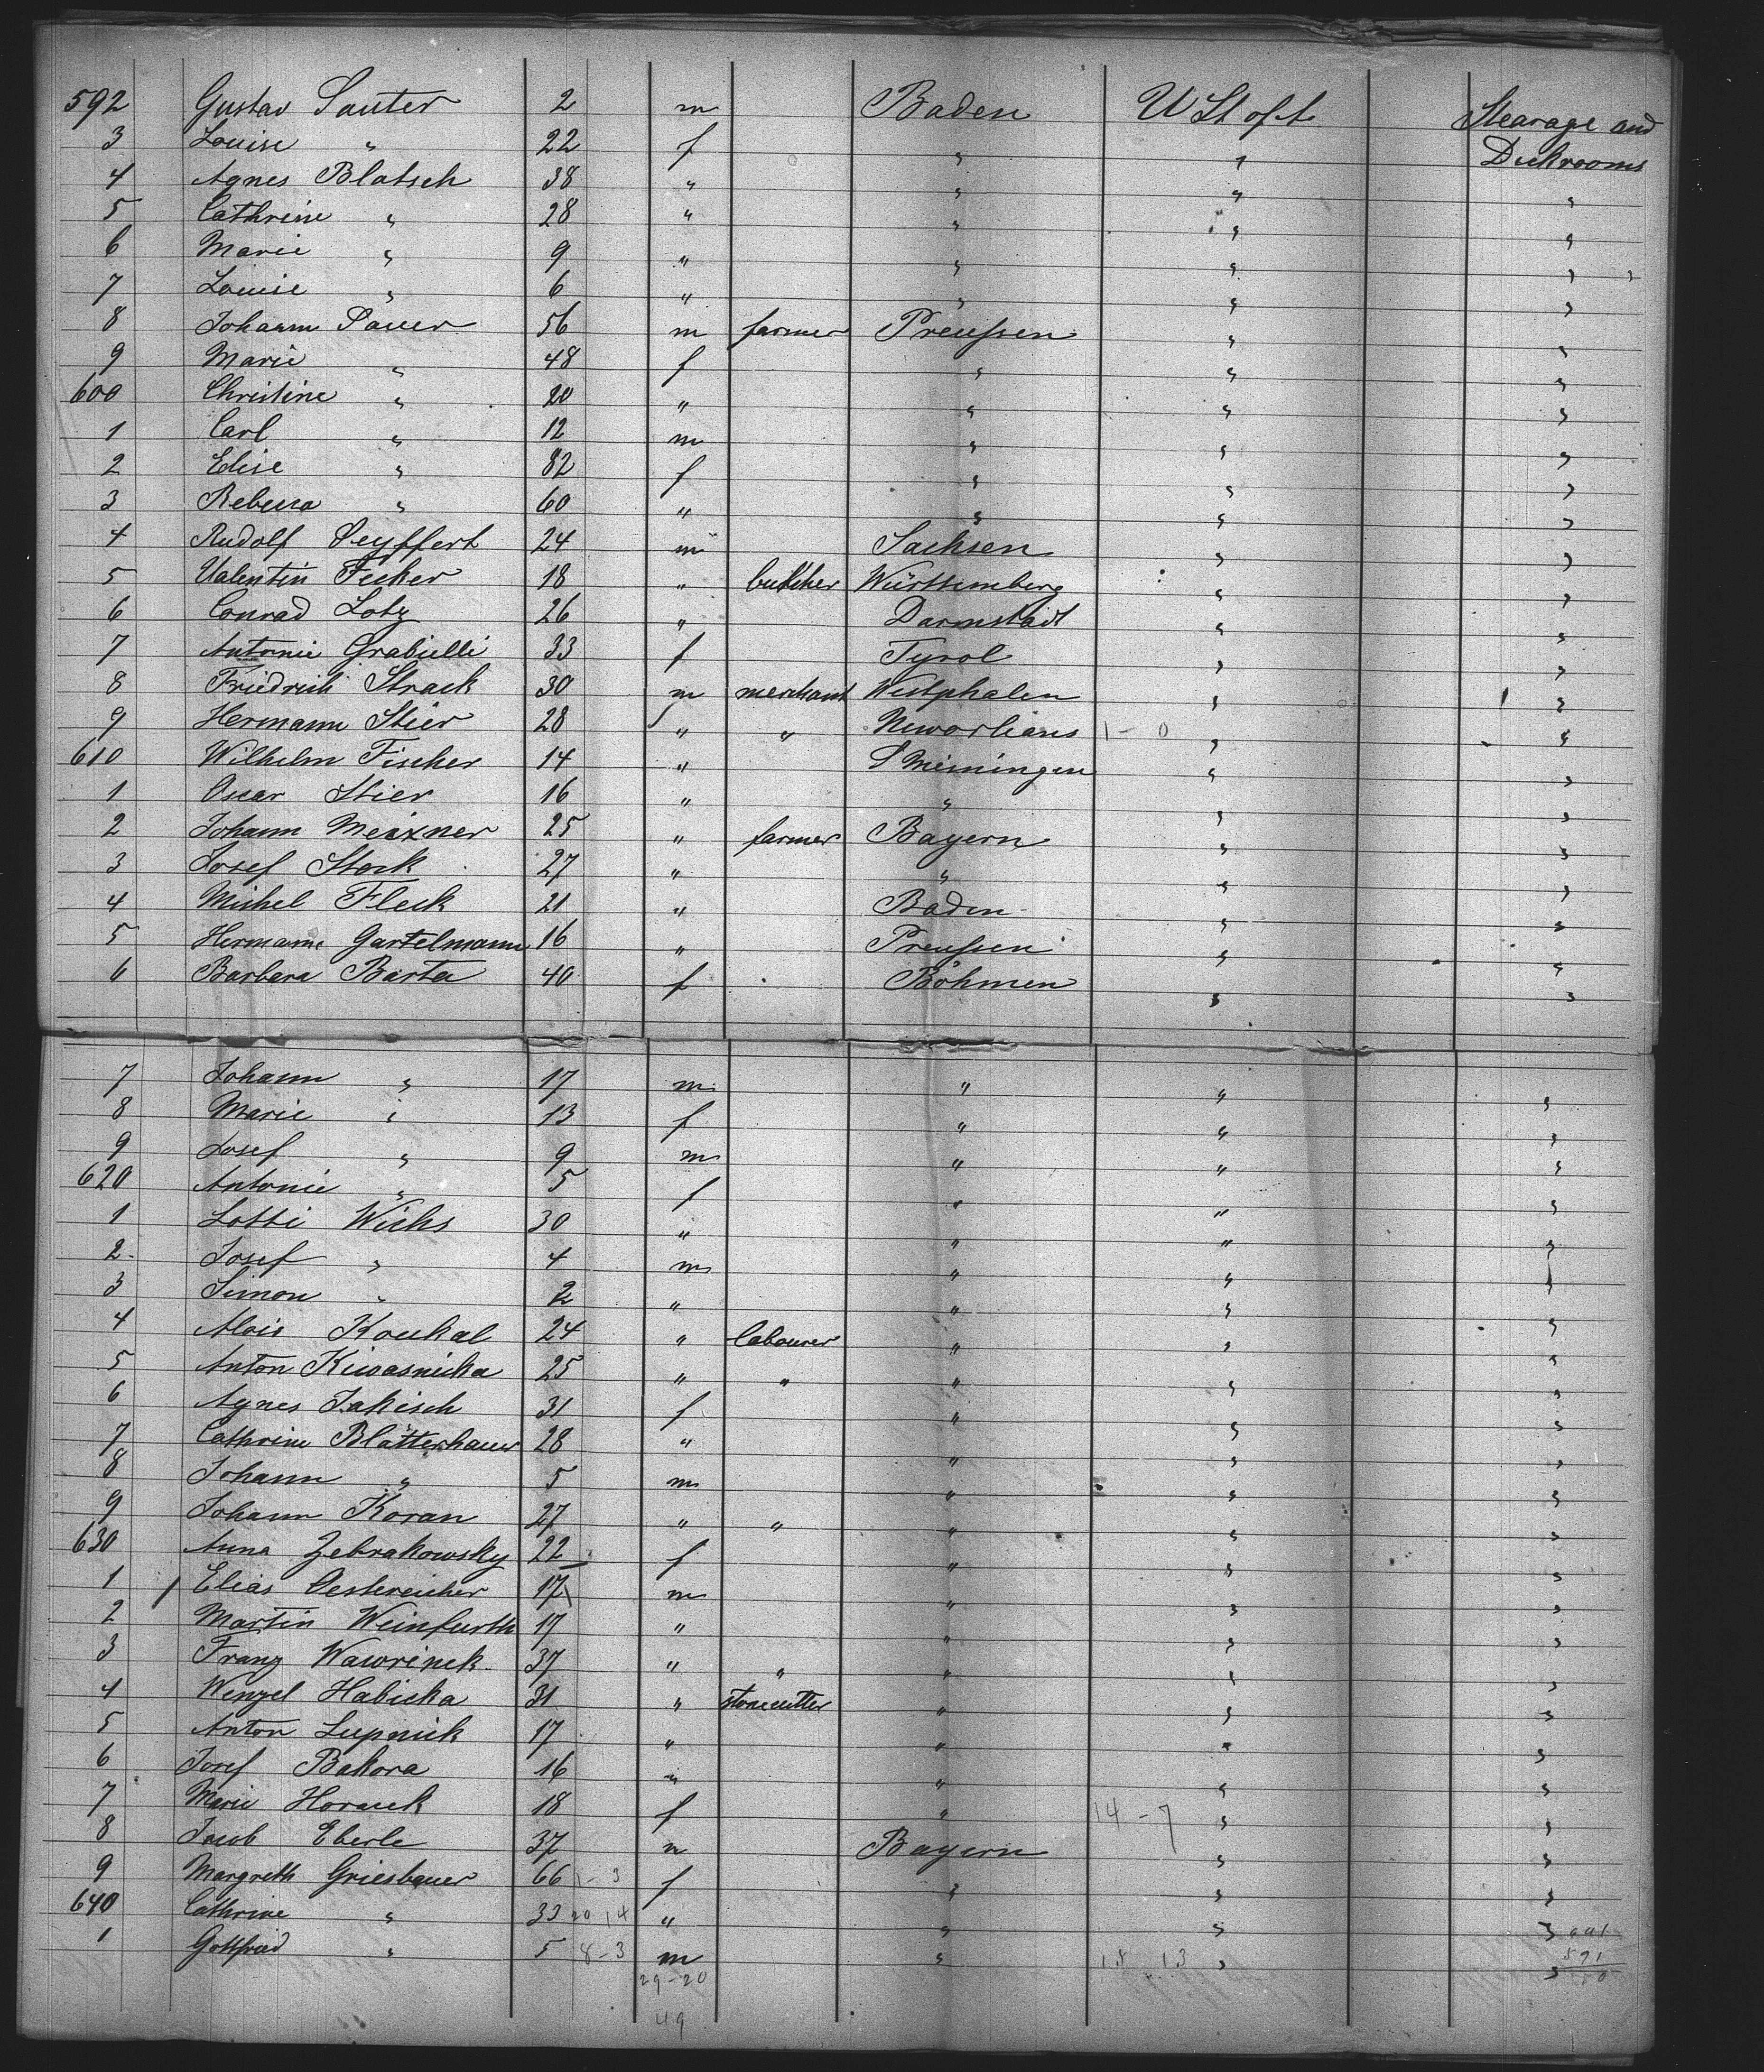 592 Gustav Sauter 2 m Baden U St of A Stearage and
3 Louise " 22 f " " Deckrooms
4 Agnes Blatsch 38 " " " "
5 Cathrine " 28 " " " "
6 Marie " 9 " " " "
7 Louise " 6 " " " "
8 Johann Sauer 56 m farmer Preußen " "
9 Marie " 48 f " " "
600 Christine " 20 " " " "
1 Carl " 12 m " " "
2 Elise " 82 f " " "
3 Rebecca " 60 " " " "
4 Rudolf Seyffert 24 m Sachsen " "
5 Valentin Fecker 18 " butcher Württemberg " "
6 Conrad Lotz 26 " Darmstadt " "
7 Antonie Grabielli 33 f Tyrol " "
8 Friedrich Strack 30 m merchant Westphalen " "
9 Hermann Stier 28 " " Neworlians 1 - 0 " "
610 Wilhelm Fischer 14 " S Meiningen " "
1 Oscar Stier 16 " " " "
2 Johann Meixner 25 " farmer Bayern " "
3 Josef Stock 27 " " " "
4 Michel Fleck 21 " Baden " "
5 Hermann Gartelmann 16 " Preußen " "
6 Barbara Barta 40 f Böhmen " "
7 Johann " 17 m " " "
8 Marie " 13 f " " "
9 Josef " 9 m " " "
620 Antonie " 5 f " " "
1 Lotti Wichs 30 " " " "
2 Josef " 4 m " " "
3 Simon " 2 " " " "
4 Alois Koukal 24 " labourer " " "
5 Anton Kiwasnicka 25 " " " " "
6 Agnes Jakisch 31 f " " "
7 Cathrine Blätterbauer 28 " " " "
8 Johann " 5 m " " "
9 Johann Koran 27 " " " " "
630 Anna Zebrakowsky 22 f " " "
1 Elias Oestereicher 17 m " " "
2 Martin Weinfurth 17 " " " "
3 Franz Wawrinek 37 " " " " "
4 Wenzel Habicka 31 " stonecutter " " "
5 Anton Lupnick 17 " " " "
6 Josef Bakora 16 " " " "
7 Marie Horacek 18 f " 14 - 7 " "
8 Jacob Eberle 37 m Bayern " "
9 Margreth Griesbauer 66 1 - 3 f " " "
640 Cathrine " 33 20 14 " " " " 641
1 Gottfried " 5 8 - 3 m " 18 13 " " 591
29 - 20 50
49